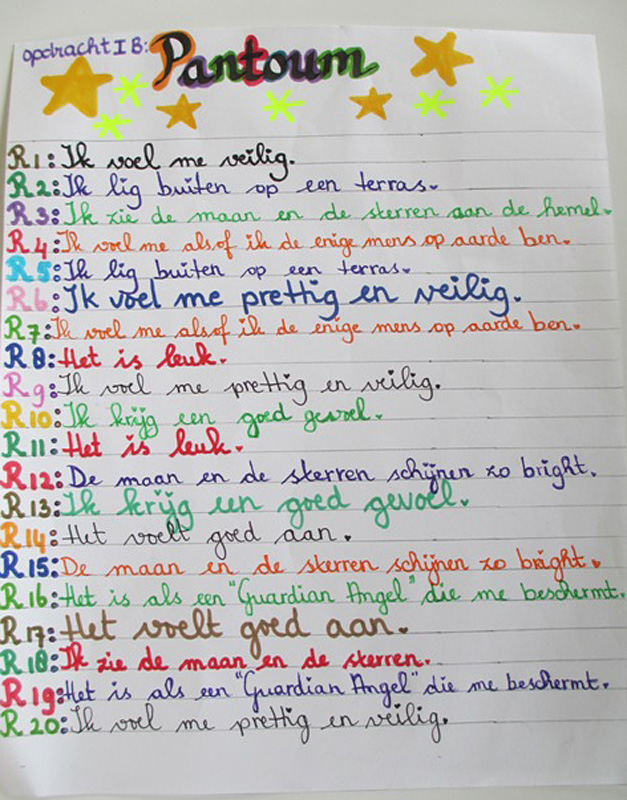 opdracht I B: Pantoum
R1: Ik voel me veilig.
R2: Ik lig buiten op een terras.
R3: Ik zie de maan en de sterren aan de hemel.
R4: Ik voel me alsof ik de enige mens op aarde ben.
R5: Ik lig buiten op een terras.
R6: Ik voel me prettig en veilig.
R7: Ik voel me alsof ik de enige mens op aarde ben.
R8: Het is leuk.
R9: Ik voel me prettig en veilig.
R10: Ik krijg een goed gevoel.
R11: Het is leuk.
R12: De maan en de sterren schijnen zo bright.
R13: Ik krijg een goed gevoel.
R14: Het voelt goed aan.
R15: De maan en de sterren schijnen zo bright.
R16: Het is als een "Guardian Angel" die me beschermt.
R17: Het voelt goed aan.
R18: Ik zie de maan en de sterren.
R19: Het is als een "Guardian Angel" die me beschermt.
R20: Ik voel me prettig en veilig.